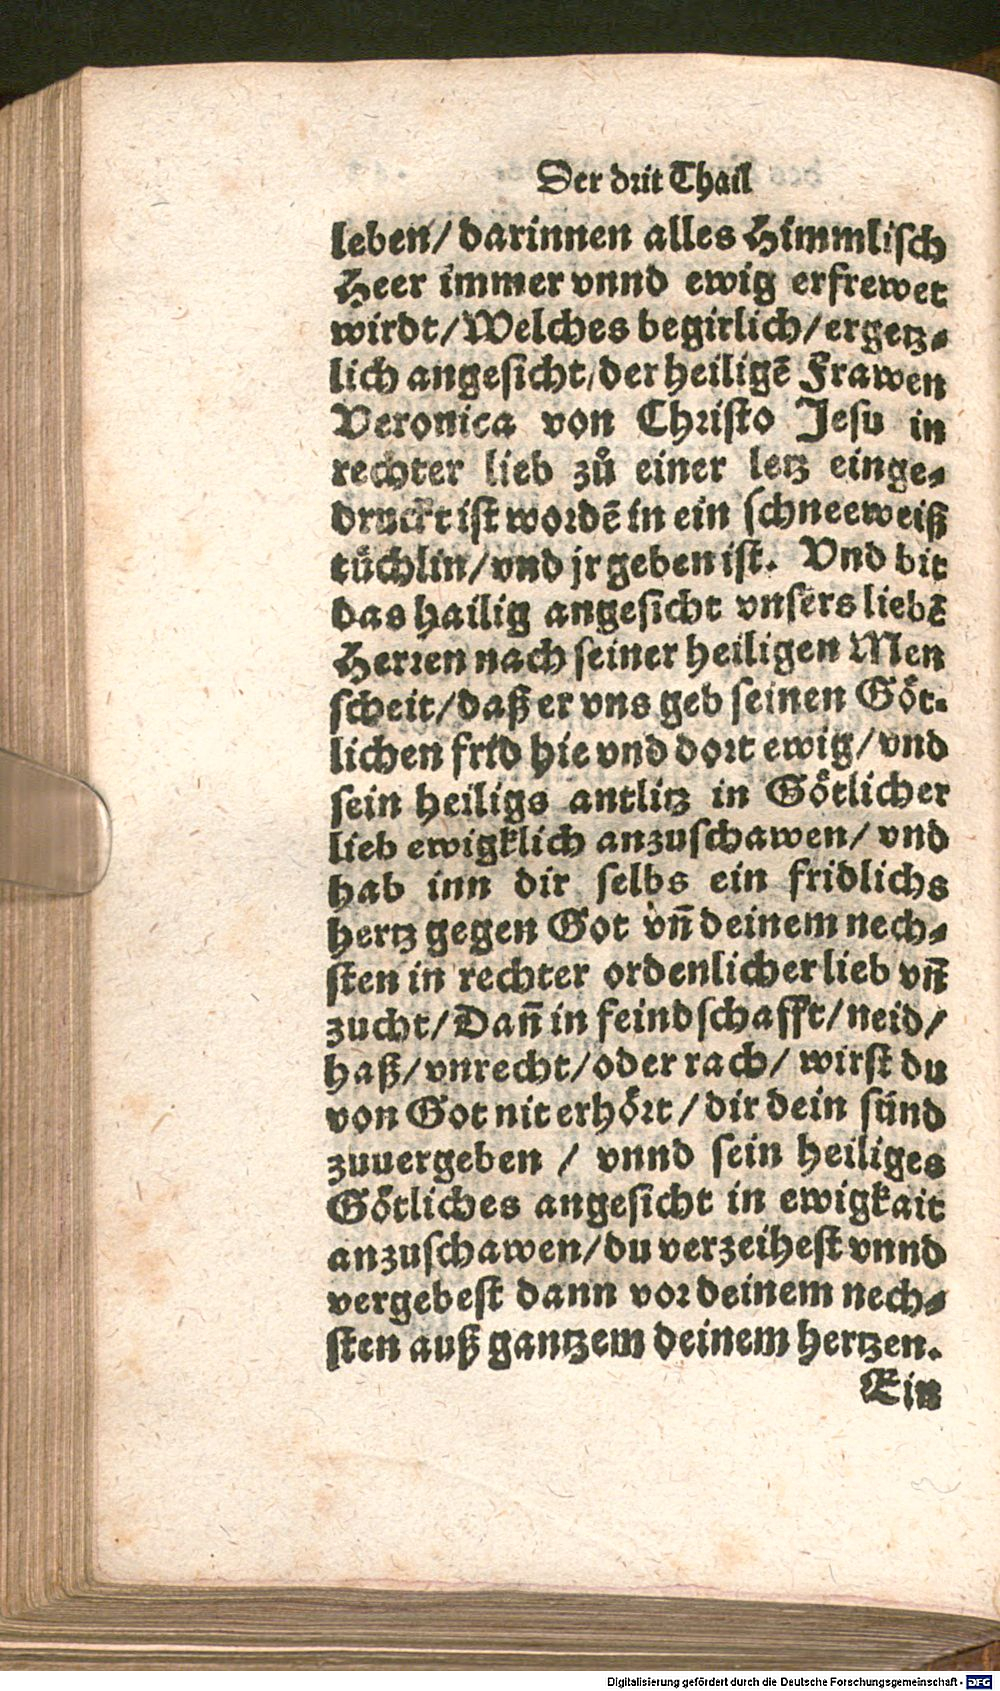 Der drit Thail
leben/ darinnen alles Himmlisch
Heer immer vnnd ewig erfrewet
wirdt/ Welches begirlich/ ergetz-
lich angesicht/ der heiligē Frawen
Veronica von Christo Jesu in
rechter lieb zů einer letz einge-
druckt ist wordē in ein schneeweiß
tüchlin/ vnd jr geben ist. Vnd bit
das hailig angesicht vnsers liebē
Herren nach seiner heiligen Men
scheit/ daß er vns geb seinen Göt-
lichen frid hie vnd dort ewig/ vnd
sein heiligs antlitz in Götlicher
lieb ewigklich anzuschawen/ vnd
hab inn dir selbs ein fridlichs
hertz gegen Got vn̄ deinem nech-
sten in rechter ordenlicher lieb vn̄
zucht/ Dan̄ in feindschafft/ neid/
haß/ vnrecht/ oder rach/ wirst du
von Got nit erhört/ dir dein sünd
zuuergeben / vnnd sein heiliges
Götliches angesicht in ewigkait
anzuschawen/ du verzeihest vnnd
vergebest dann vor deinem nech-
sten auß gantzem deinem hertzen.
Ein
Digitalisierung gefördert durch die Deutsche Forschungsgemeinschaft - DFG